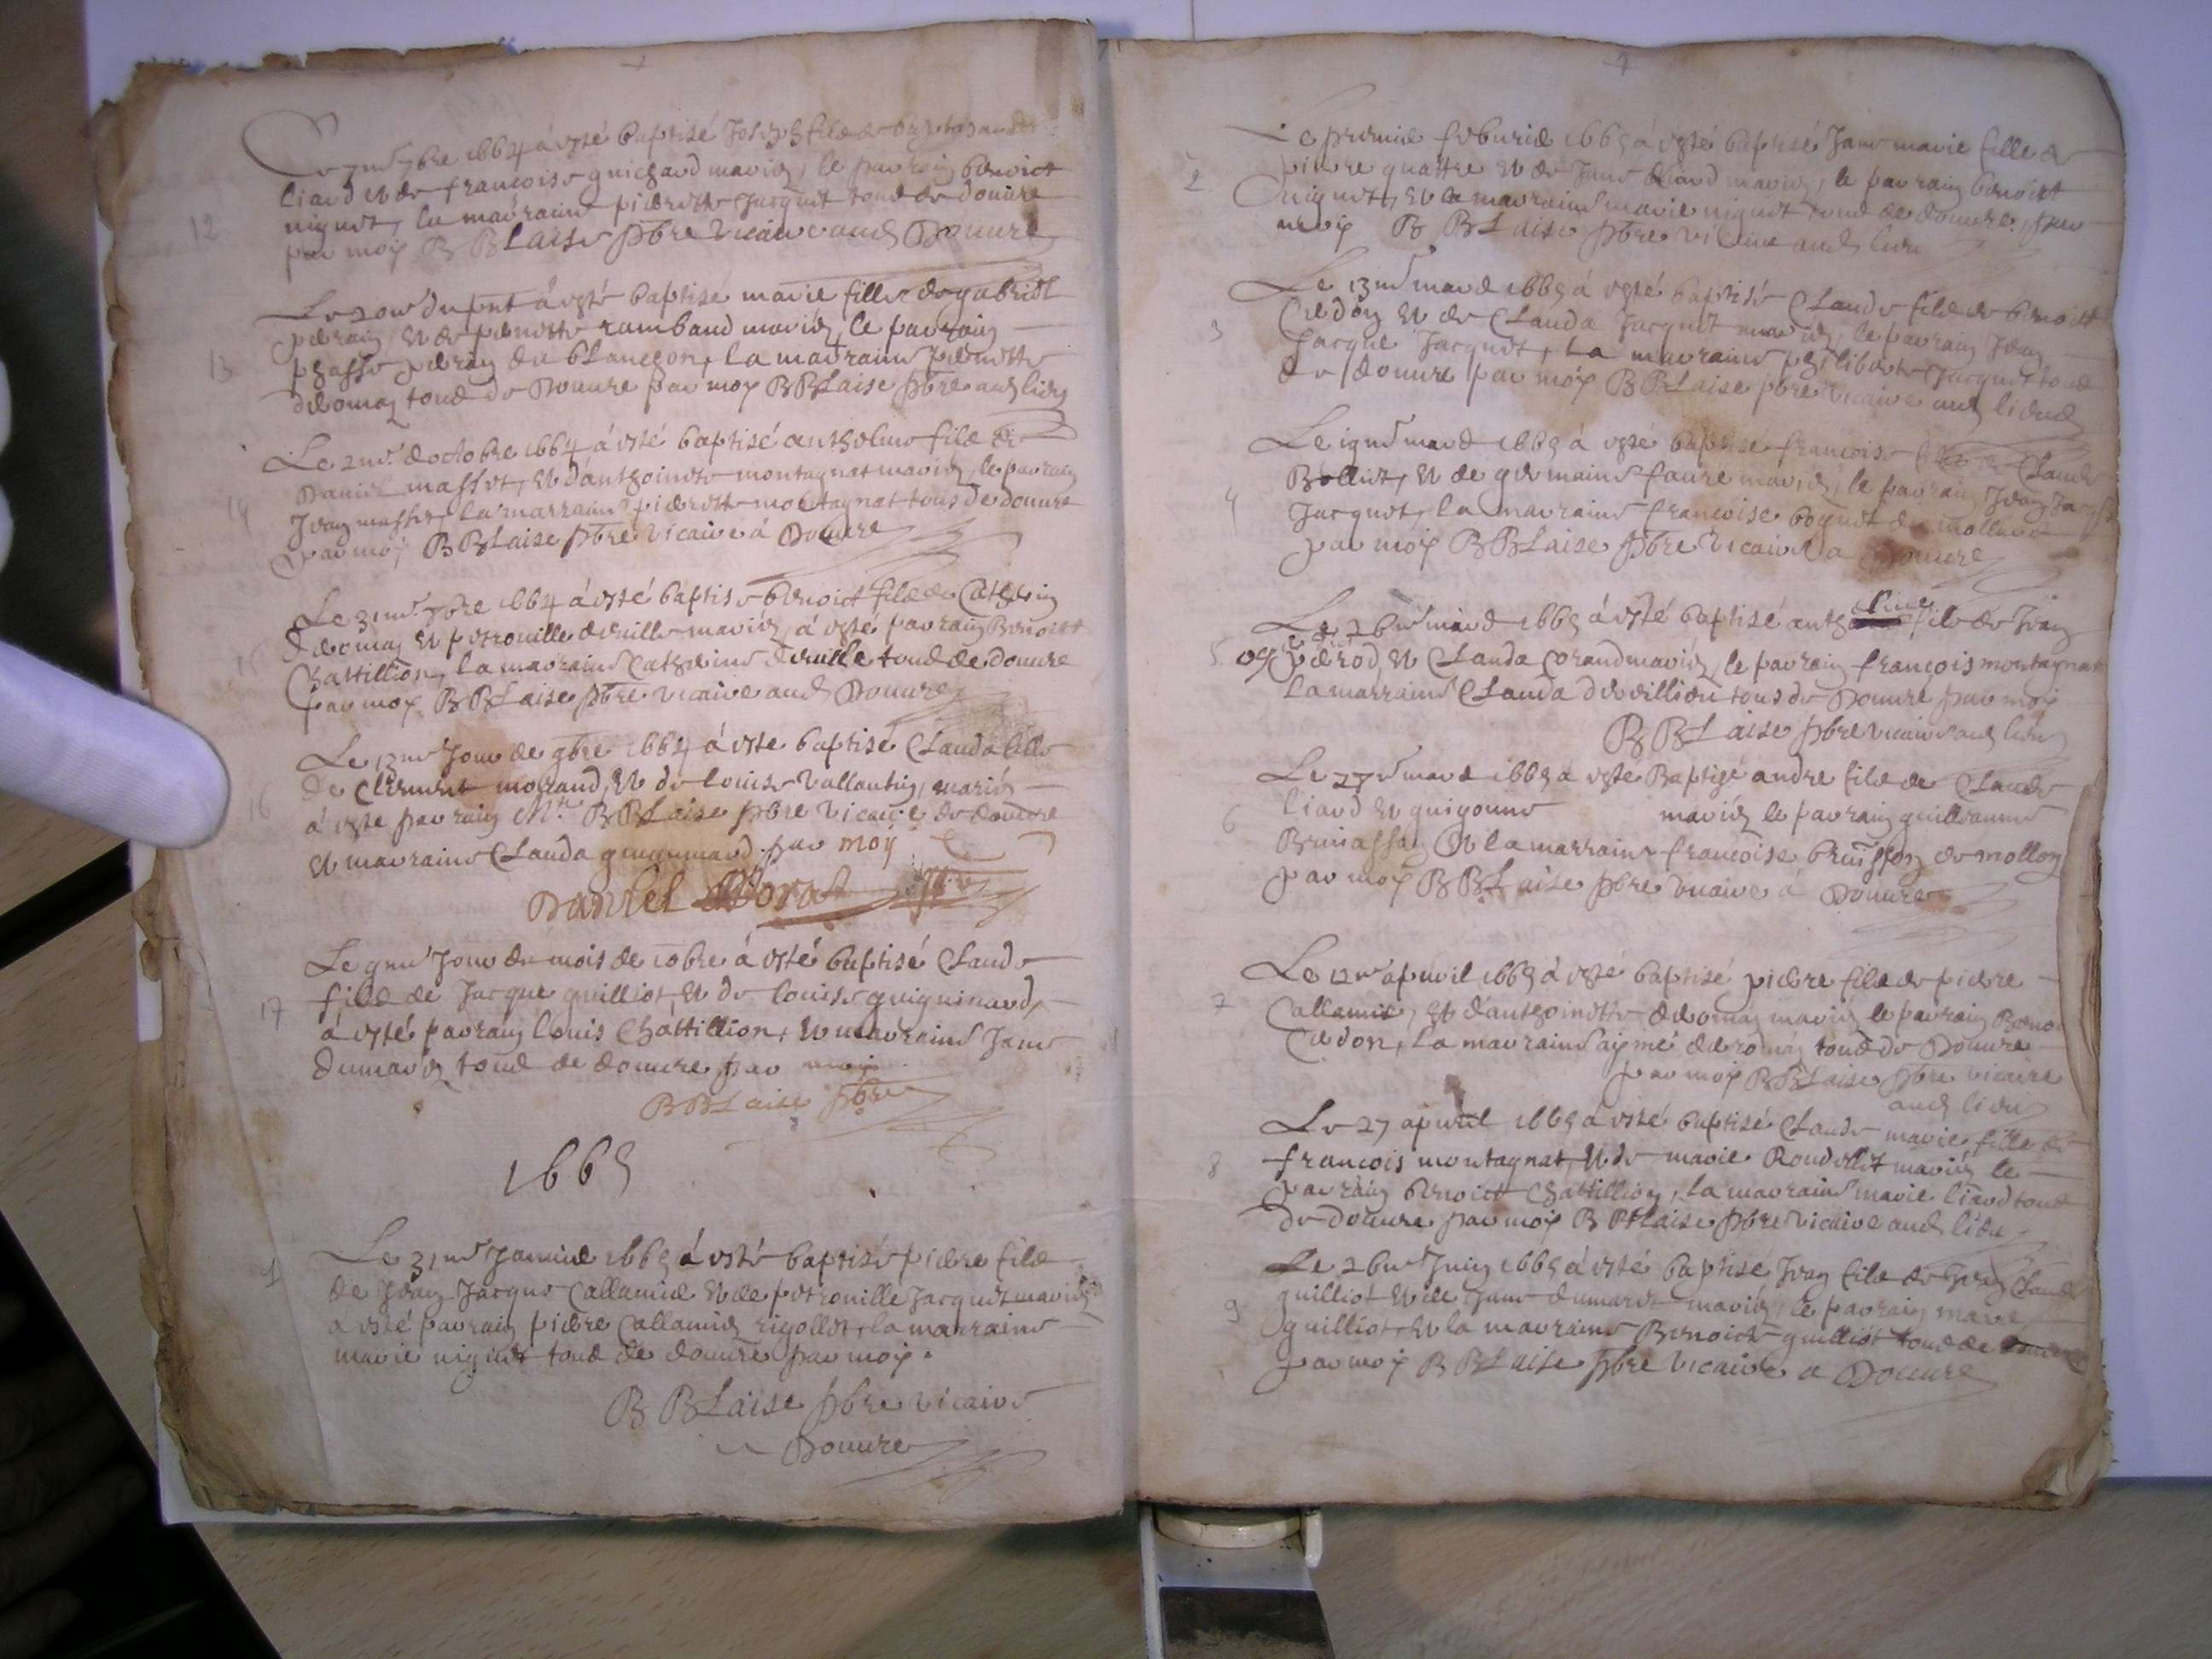 Le 7me 7bre 1664 á esté baptisé Joseph filz de
liard et de francoise guichard mariés, le parrain benoict
niquet, la marraine pierrette Jacquet tous de douure
par moy B BLaise pbre vicaire aud Douure
12
Le 20me du pnt á esté baptisé marie fille de gabriel
perrin, et de pernette rambaud mariés, le parrain
perrin du blancgon, la marraine pernette
deromas tous de Douure par moy B BLaise pbre aud lieu
13
Le 2me doctobre 1664 á esté baptisé anthelme filz de
Daniel massot, et danthoinette montagnat mariés, le parrain
Jean massot, la marraine pierrette montagnat tous de douure
par moy B BLaise pbre vicaire á Douure
14
Le 31me 1664 á esté baptisé benoict filz de Cathelin
deromas et petronille deuille mariés, á esté parrain Benoict
Chattillion, la marraine Catherine deuille tous de douure
par moy B BLaise pbre vicaire aud Douure
15
Le 13me Jour de 9bre 1664 á esté baptisé Clauda fille
de Clement morand, et de louise vallantin, mariés
á esté parrain Mre B BLaise pbre vicaire de douure
et marraine Clauda guigumard par moy
16
Le 9me Jour du mois de 10bre á esté baptisé Claude
filz de Jacque guilliot, et de louise guiguimard,
á esté parrain louis Chattillion, et marraine Jane
dumarés tous de douure par moy
B BLaise pbre
17
1665
Le 31me Janvier 1665 á esté baptisé pierre filz
de Jean Jacque Callamier et de petronille Jacquet mariés
a esté parrain pierre Callamier rigollet, la marraine
marie niquet tous de douure par moy
B BLaise pbre vicaire
a Douure
1
Le premier feburier 1665 á esté baptisé Jane marie fille de
pierre quattre et de Jane liard mariés, le parrain benoict
niquet, et la marraine marie niquet tous de douure, par
moy B BLaise pbre vicaire aud lieu
2
Le 13me mars 1665 á esté baptisé Claude filz de benoict
Credon et de Clauda Jacquet mariés, le parrain Jean
Jacque Jacquet, la marraine philiberte Jacquet tous
de douure par moy B BLaise pbre vicaire aud lieu
3
Le mars 1665 á esté baptisé francoise Claude
Bolliet, et de germaine faure mariés, le parrain Jean
Jacquet, la marraine francoise boquet du mollard
par moy B BLaise pbre vicaire a Douure
4
Le 26me mars 1665 á esté baptisé filz de Jean
perrod, et Clauda Corand mariés, le parrain françois montagnat
La marraine Clauda deveillieu tous de Douure par moy
B BLaise pbre vicaire aud lieu
5
Le 27me mars 1665 a esté Baptisé andre filz de Claude
liard et guigonne mariés le parrain guilleaume
et la marraine francoise de mollon
par moy B BLaise pbre vicaire á Douure
6
Le 12me apuril 1665 á esté baptisé pierre filz de pierre
Callamier, et d'anthoinette deromas mariés le parrain
Credon, la marraine aymé deromas tous de Douure
par moy B BLaise pbre vicaire
aud lieu
7
Le 27 apuril 1665 a esté baptisé Claude marie fille de
francois montagnat, et de marie Rondellet mariés le
parrain benoict Chattillion, la marraine marie liard tous
de douure par moy B BLaise pbre vicaire aud lieu
8
Le 26me Juin 1665 á esté baptisé Jean filz de Jean Claude
guilliot et de Jane dumarest mariés, le parrain marc
guilliot, et la marraine Benoicte guilliot tous de douure
par moy B BLaise pbre vicaire a Douure
9